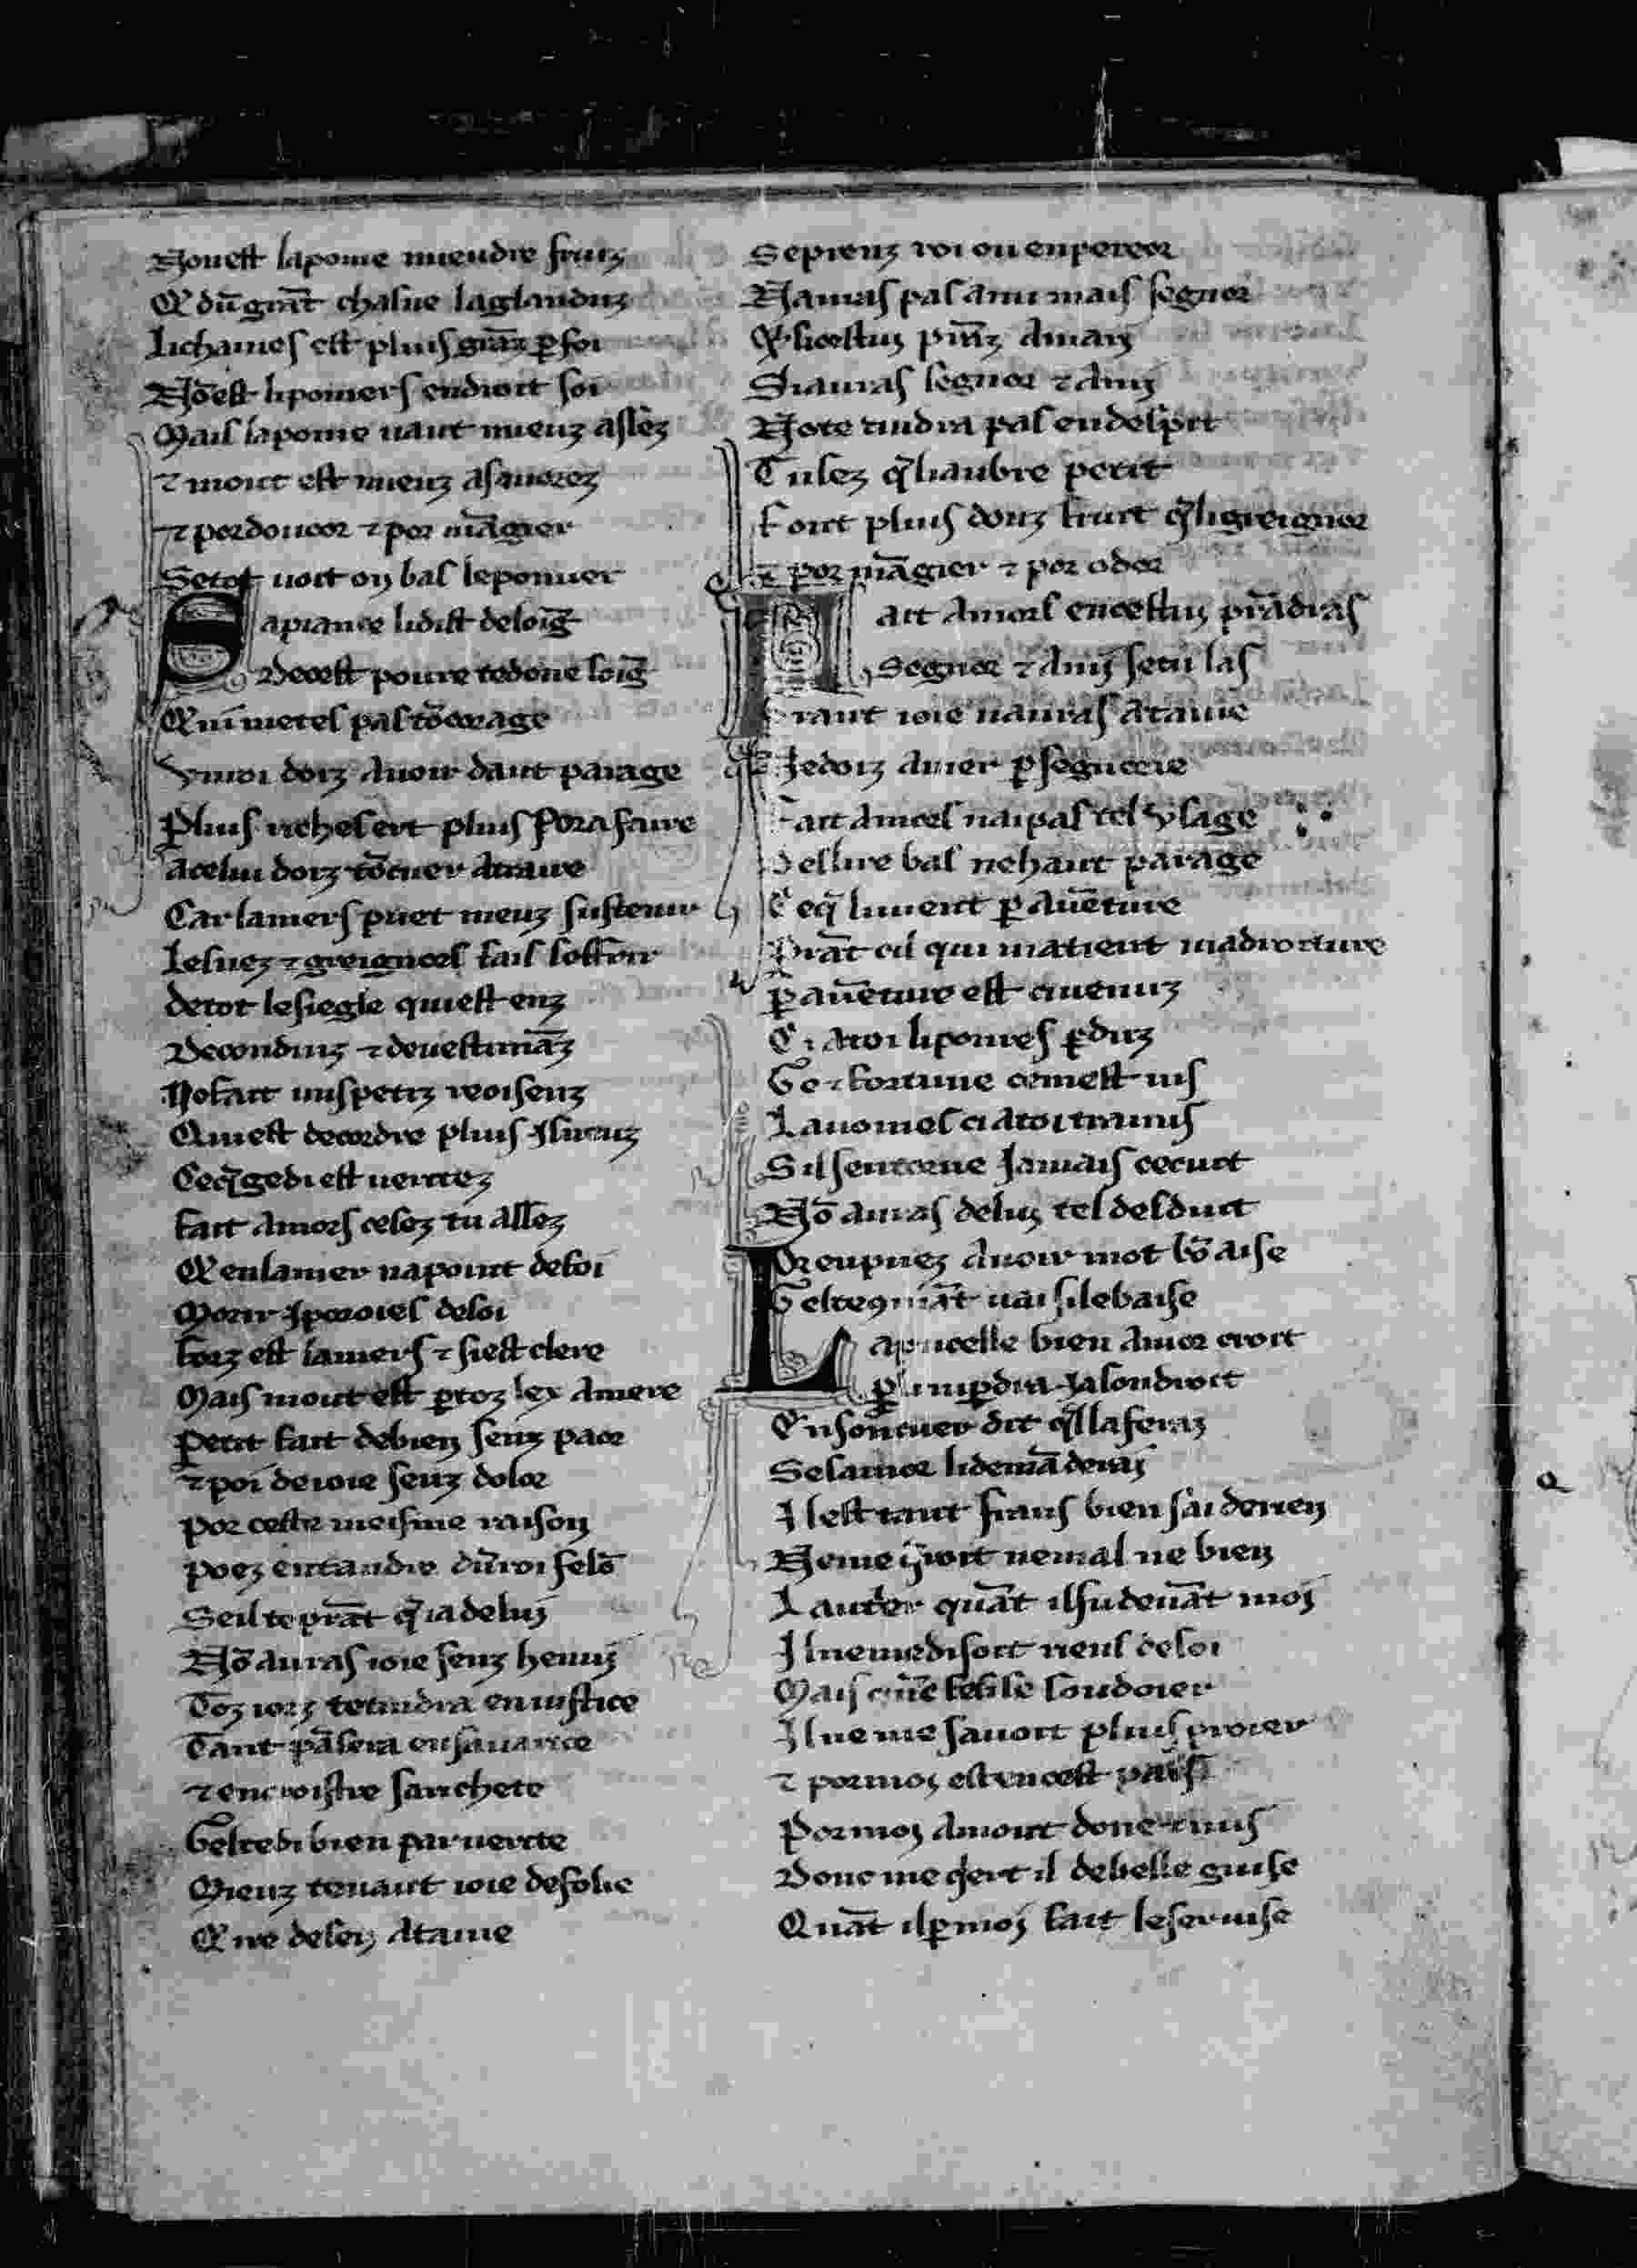 Nonest lapome miendre fruiz
Q̃ dũ grãt chasne laglanduz
Lichaines est pluis grãz ꝑ soi
Nõest lipomers endroit soi
Mais lapome uaut mieuz assez
⁊ mout est mieuz asauorez
⁊ pordoucor ⁊ por mãgier
Setot uoit on bas lepomier
Sapiance lidist deloig̃
Decest poure tedone soig̃
Qui metes pas tõ corage
A moi doiz auoir daut parage
Plius riches ert plius porafaire
acelui doiz tõcuer atraire
Car lamers puet mieuz sustenir
Lesuez ⁊ greignors fais soffrir
detot lesiegle quiest enz
Deconduiz ⁊ deuestimãz
Nofait unspetiz roisenz
Quiest decordre plius ısliieuz
Ceq̃gedi est ueritez
fait amors cesez tu assez
Q̃ enlamer napoint defoi
Morir ıporoies desoi
forz est lamers ⁊ siest clere
Mais mout est ꝑtoz lex amere
Petit fait debien senz paor
⁊ poi deioie senz dolor
por ceste meisme raison
poez entandre dũ roi felõ
Seil te prãt q̃ ia delui
Nõ auras ioie senz henui
Toz iorz tetindra eniustice
Tant pãsera ensauarice
⁊ encroistre sarichete
Geltedi bien par uerite
Mieuz tenaut ioie desolie
Q̃ ne deseiz ataine
Sepreuz roi ou enpereor
Nauras pas ami mais segnor
Q̃ sicestui prĩz amari
Siauras segnor ⁊ ami
Note tindra pas endespit
Tu sez q̃ liaubre petit
font plius douz fruit q̃ ligreignor
⁊ por mãgier ⁊ por odor
Fait amors encestui prãdras
Segnor ⁊ ami setu las
Grant ioie nauras ataine
Jedoiz amer ꝑ segnorie
Fait amors naipas tel usage
Deslire bas nehaut parage
Ceq̃ liuient ꝑ auẽture
Prãt cil qui matient madroiture
ꝑ auẽture est auenuz
Ci atoi lipomes ꝑduz
Ge ⁊ fortune comest uis
Lauomes ci atoi tramis
Sil sentorne Jamais cecuit
Nõ auras deluz tel desduit
Or enpuez auoir mot bõ aise
Gelteꝯmãt uai silebaise
Lapucelle bien amor croit
ꝑ lui ꝑdra ialondroit
Ensoncuer dit q̃llaferai
Selamor lidemãderai
Il est tant frans bien sai derien
Neme q̃roit nemal ne bien
Lautrer quãt ilfudeuãt moi
Ilnemedisoit riens desoi
Mais cũe fetile soudoier
Ilneme sauoit plius proier
⁊ pormoi estencest païs
Pormoi amout doné ⁊ mis
Donc me q̃ert il debelle guise
Quãt ilꝑmoi fait leseruise